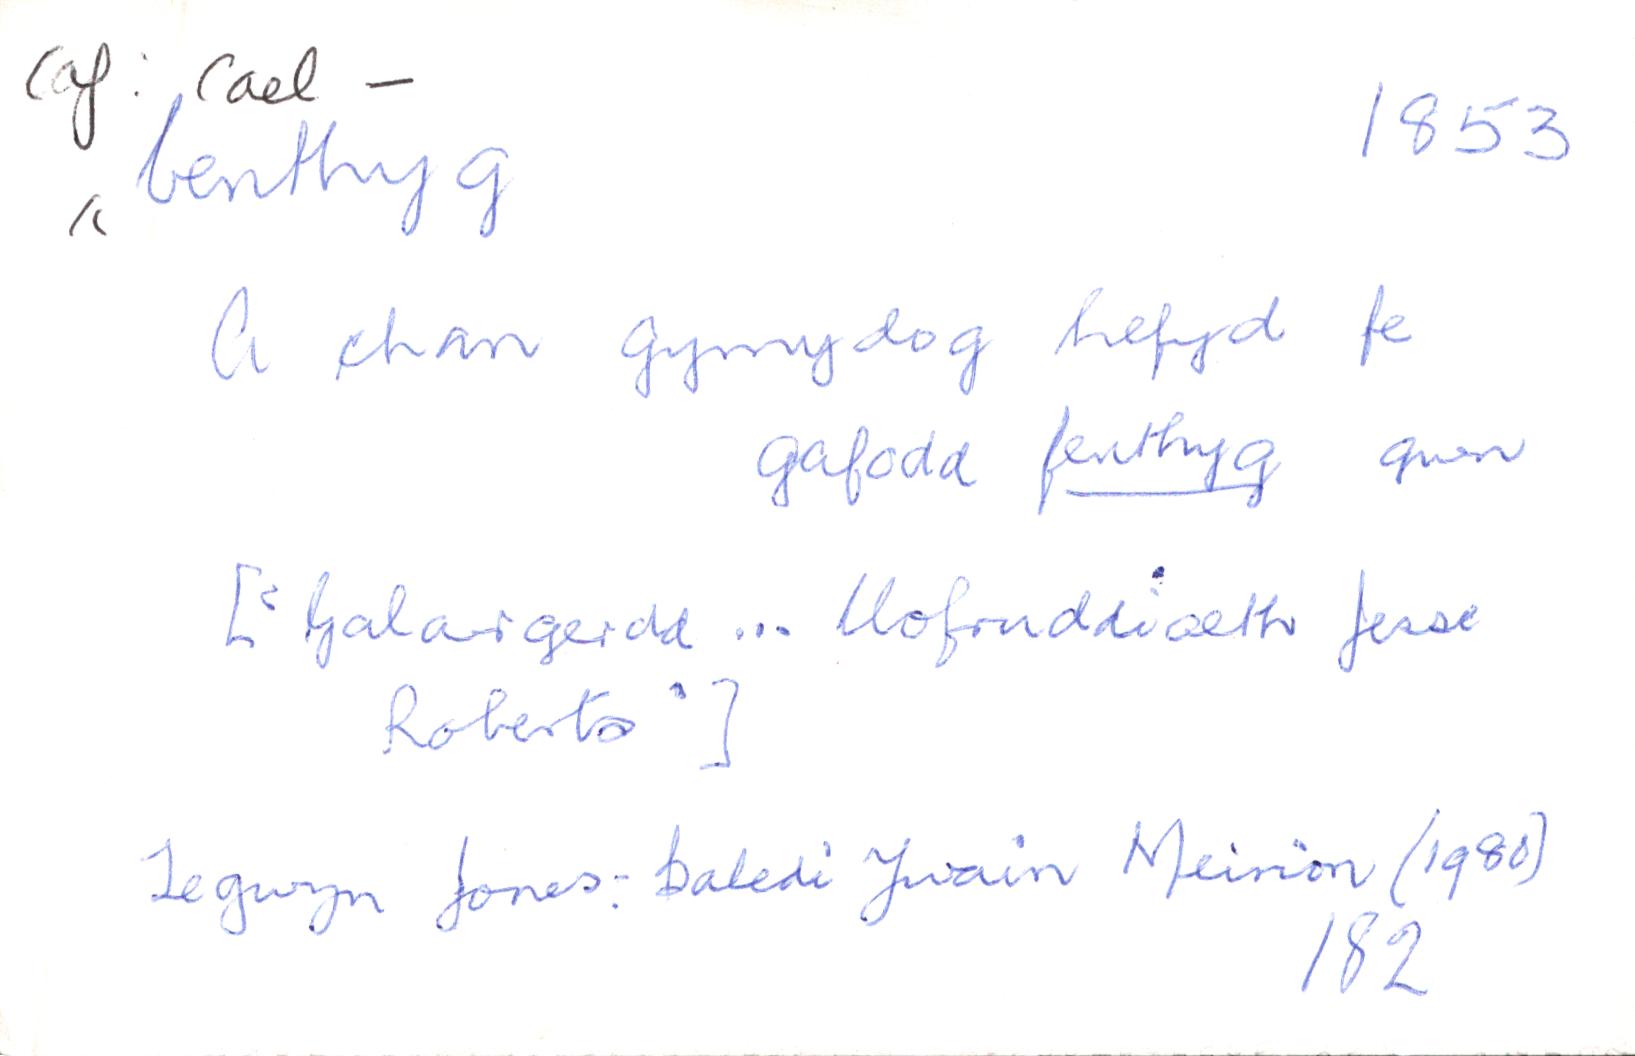 caf: cael –
benthyg 1853
A chan gymydog hefyd fe
gafodd fenthyg gwn
['Galargerdd ... Llofruddiaeth Jesse
Roberts']
Tegwyn Jones: Baledi Ywain Meirion (1980)
182